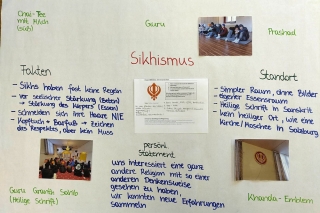 Chai-Tee
mit Milch
(süß)
Guru
Prashad
Sikhismus
Fakten
- Sikhs haben fast keine Regeln
- vor seelischer Stärkung (Beten)
→ Stärkung des Körpers (Essen)
- Schneiden sich ihre Haare NIE
- Kopftuch + Barfuß → Zeichen
des Respektes, aber kein Muss
Standort
- Simpler Raum, ohne Bilder
- eigener Essensraum
- Heilige Schrift in Sanskrit
- kein heiliger Ort, wie eine
Kirche/Moschee in Salzburg
persönl.
Statement
uns interessiert eine ganz
andere Religion mit so einer
anderen Denkensweise
gesehen zu haben,
wir konnten neue Erfahrungen
sammeln
Guru Granth Sahib
(Heilige Schrift)
Khanda-Emblem